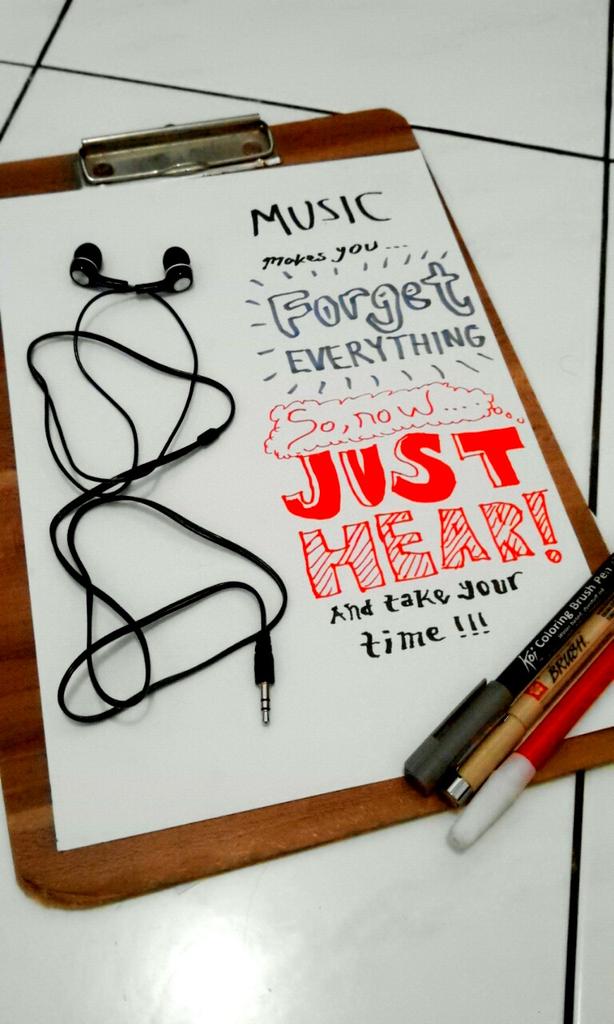 MUSIC
makes you...
Forget
EVERYTHING
So, now....
JUST
HEAR!
And take your
time !!!
Koi Coloring Brush Pen
BRUSH